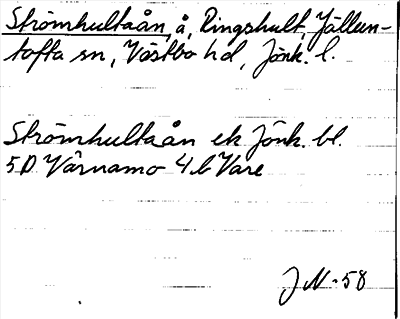 Strömhultaån, å, Ringshult, Jällun-
tofta sn, Västbo hd, Jönk. l.
Strömhultaån ek Jönk. bl.
5D Värnamo 4b Vare
J N-58